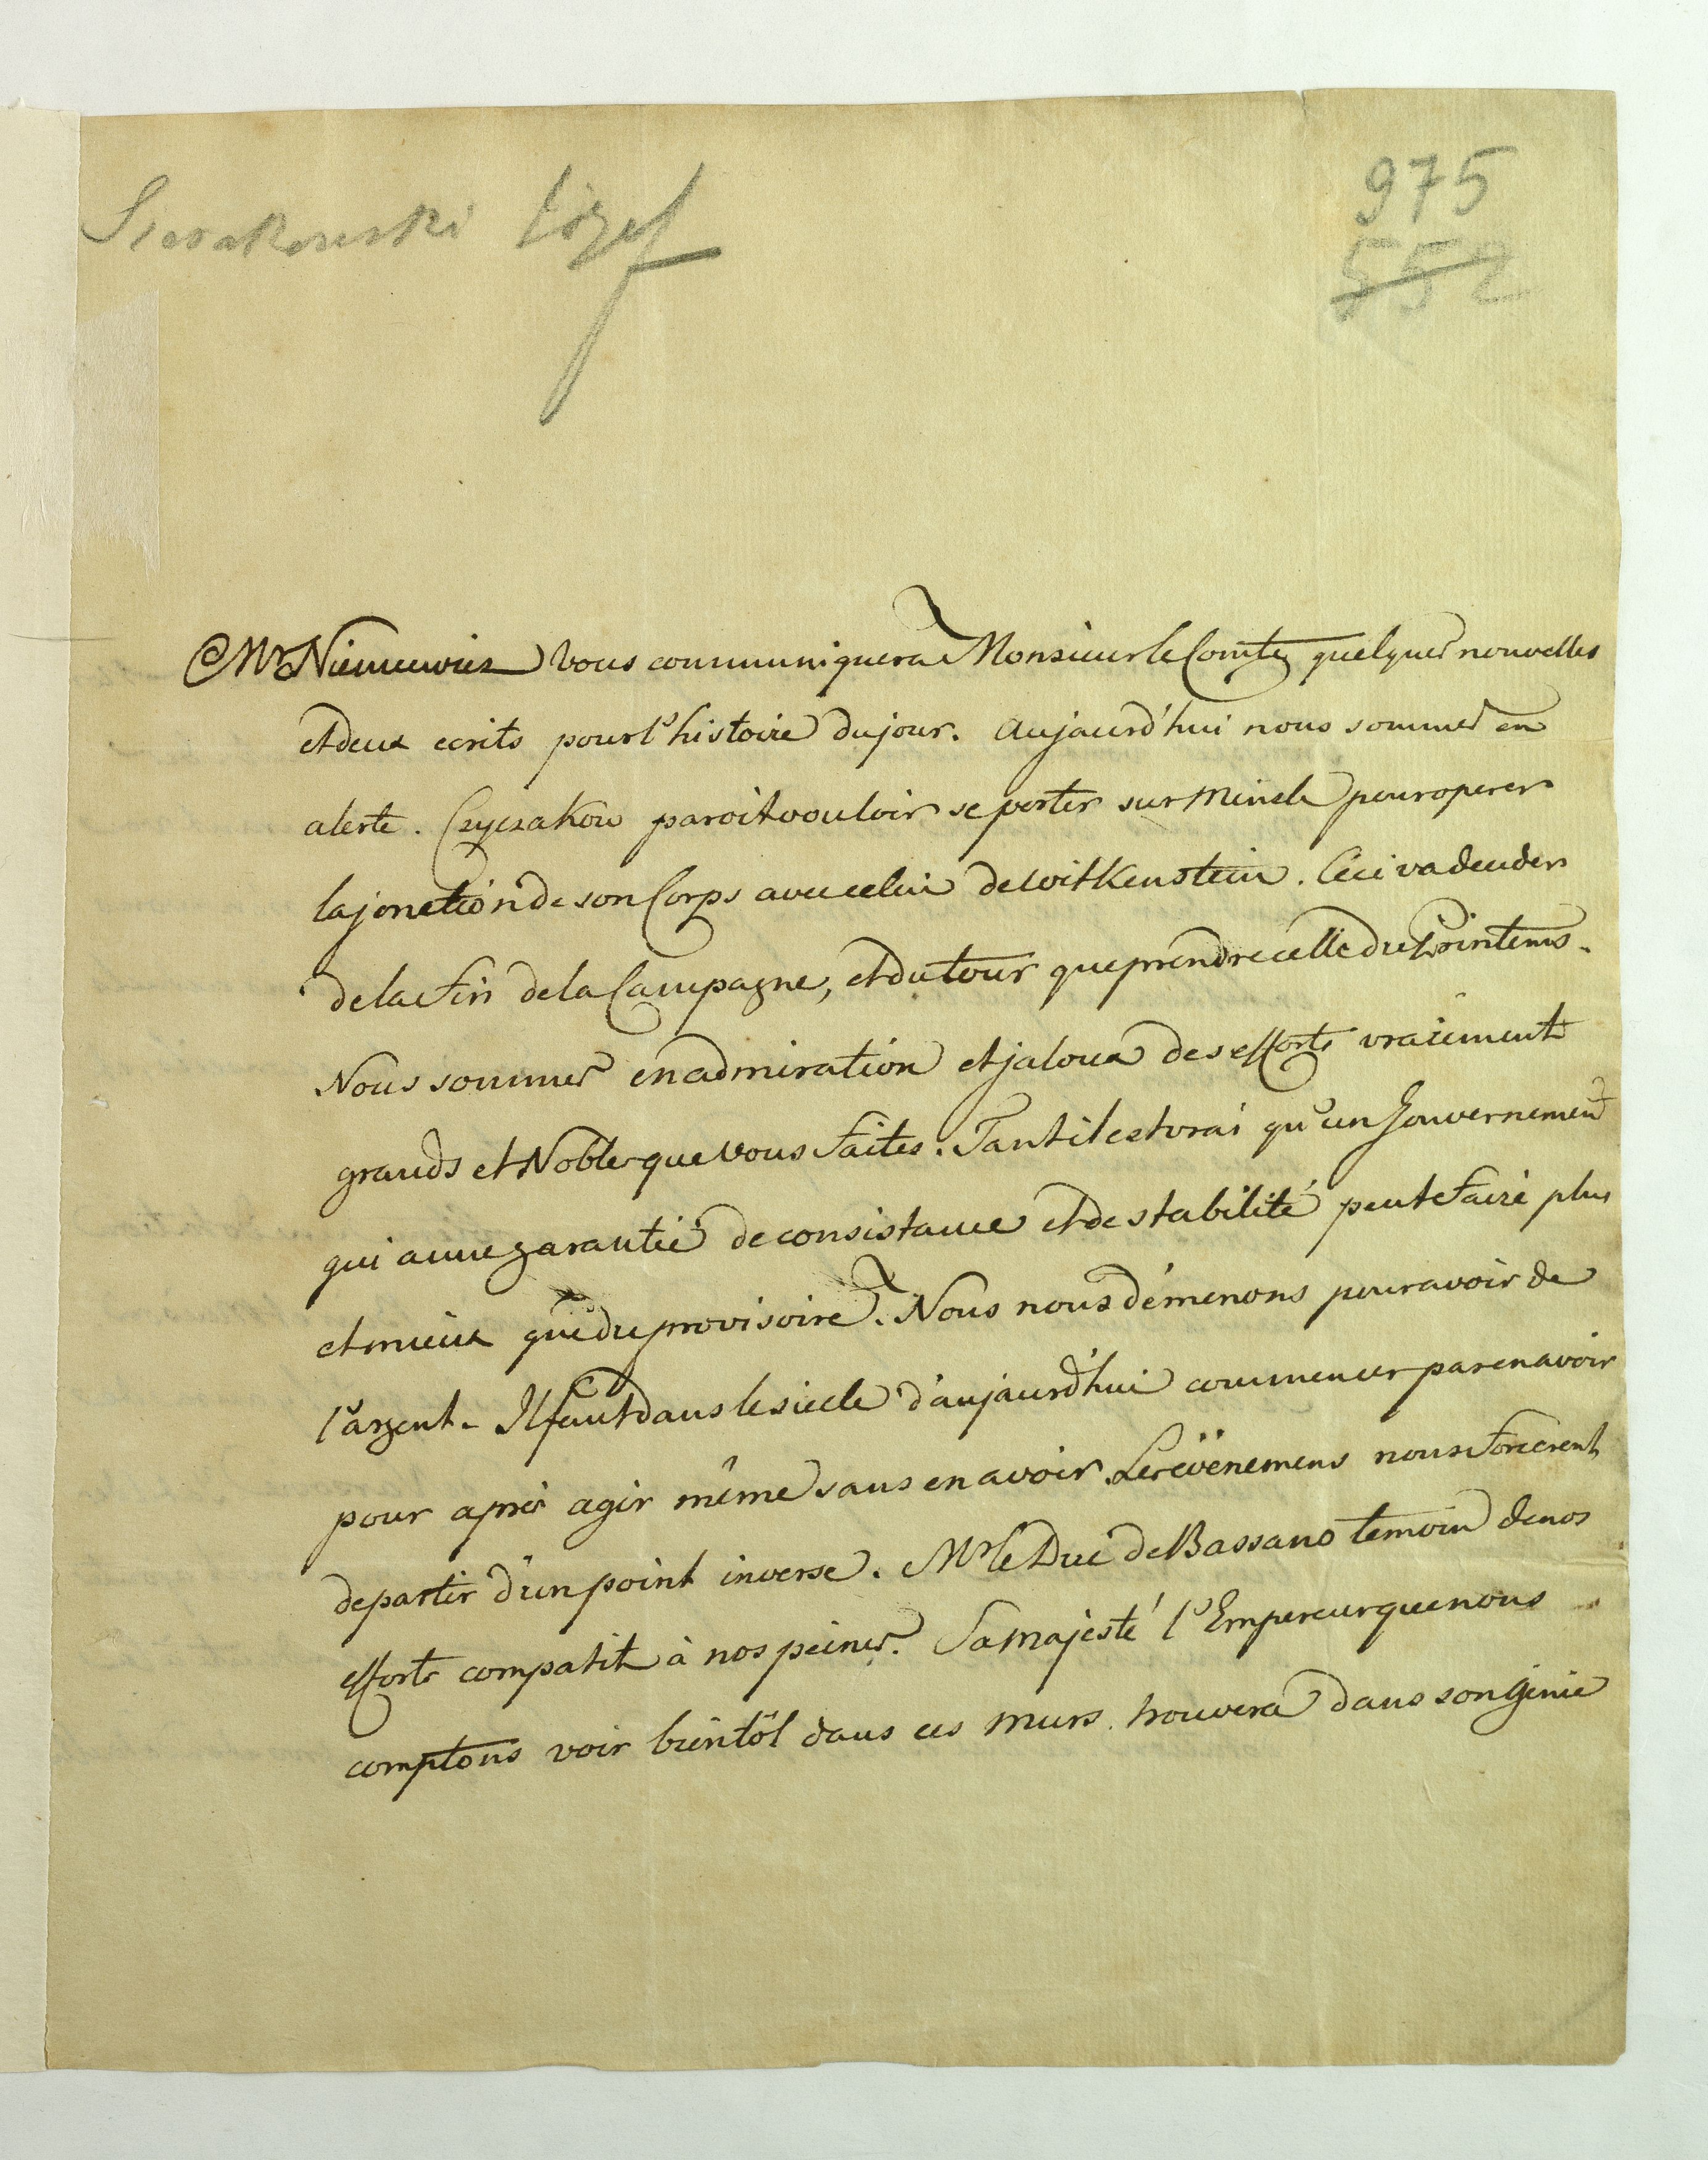 Sierakowski Józef
975
552
Mr Niemcewicz Vous communiquera Monsieur le Comte quelques nouvelles
et deux ecrits pour l'histoire du jour. Aujourd'hui nous sommes en
alerte. Czyczakow paroit vouloir se porter sur Minsk pour operer
la jonction de son Corps avec celui de Witkenstein. Ceci va decider
de la fin de la Campagne, et du tour que prendre celle du Printems.
Nous sommes en admiration et jaloux des efforts vraiement
grands et Nobles que vous faites. Tant il est vrai qu'un Gouvernement
qui a une garantie de consistance et de stabilité peut faire plus
et mieux que du provisoire. Nous nous démenons pour avoir de
l'argent. Il faut dans le siecle d'aujourd'hui commencer par en avoir
pour après agir même sans en avoir. Les évenemens nous forcerent
de partir d'un point inverse. Mr le Duc de Bassano temoin de nos
efforts compatit à nos peines. Sa Majesté l'Empereur que nous
comptons voir bientôt dans ces murs trouvera dans son Génie